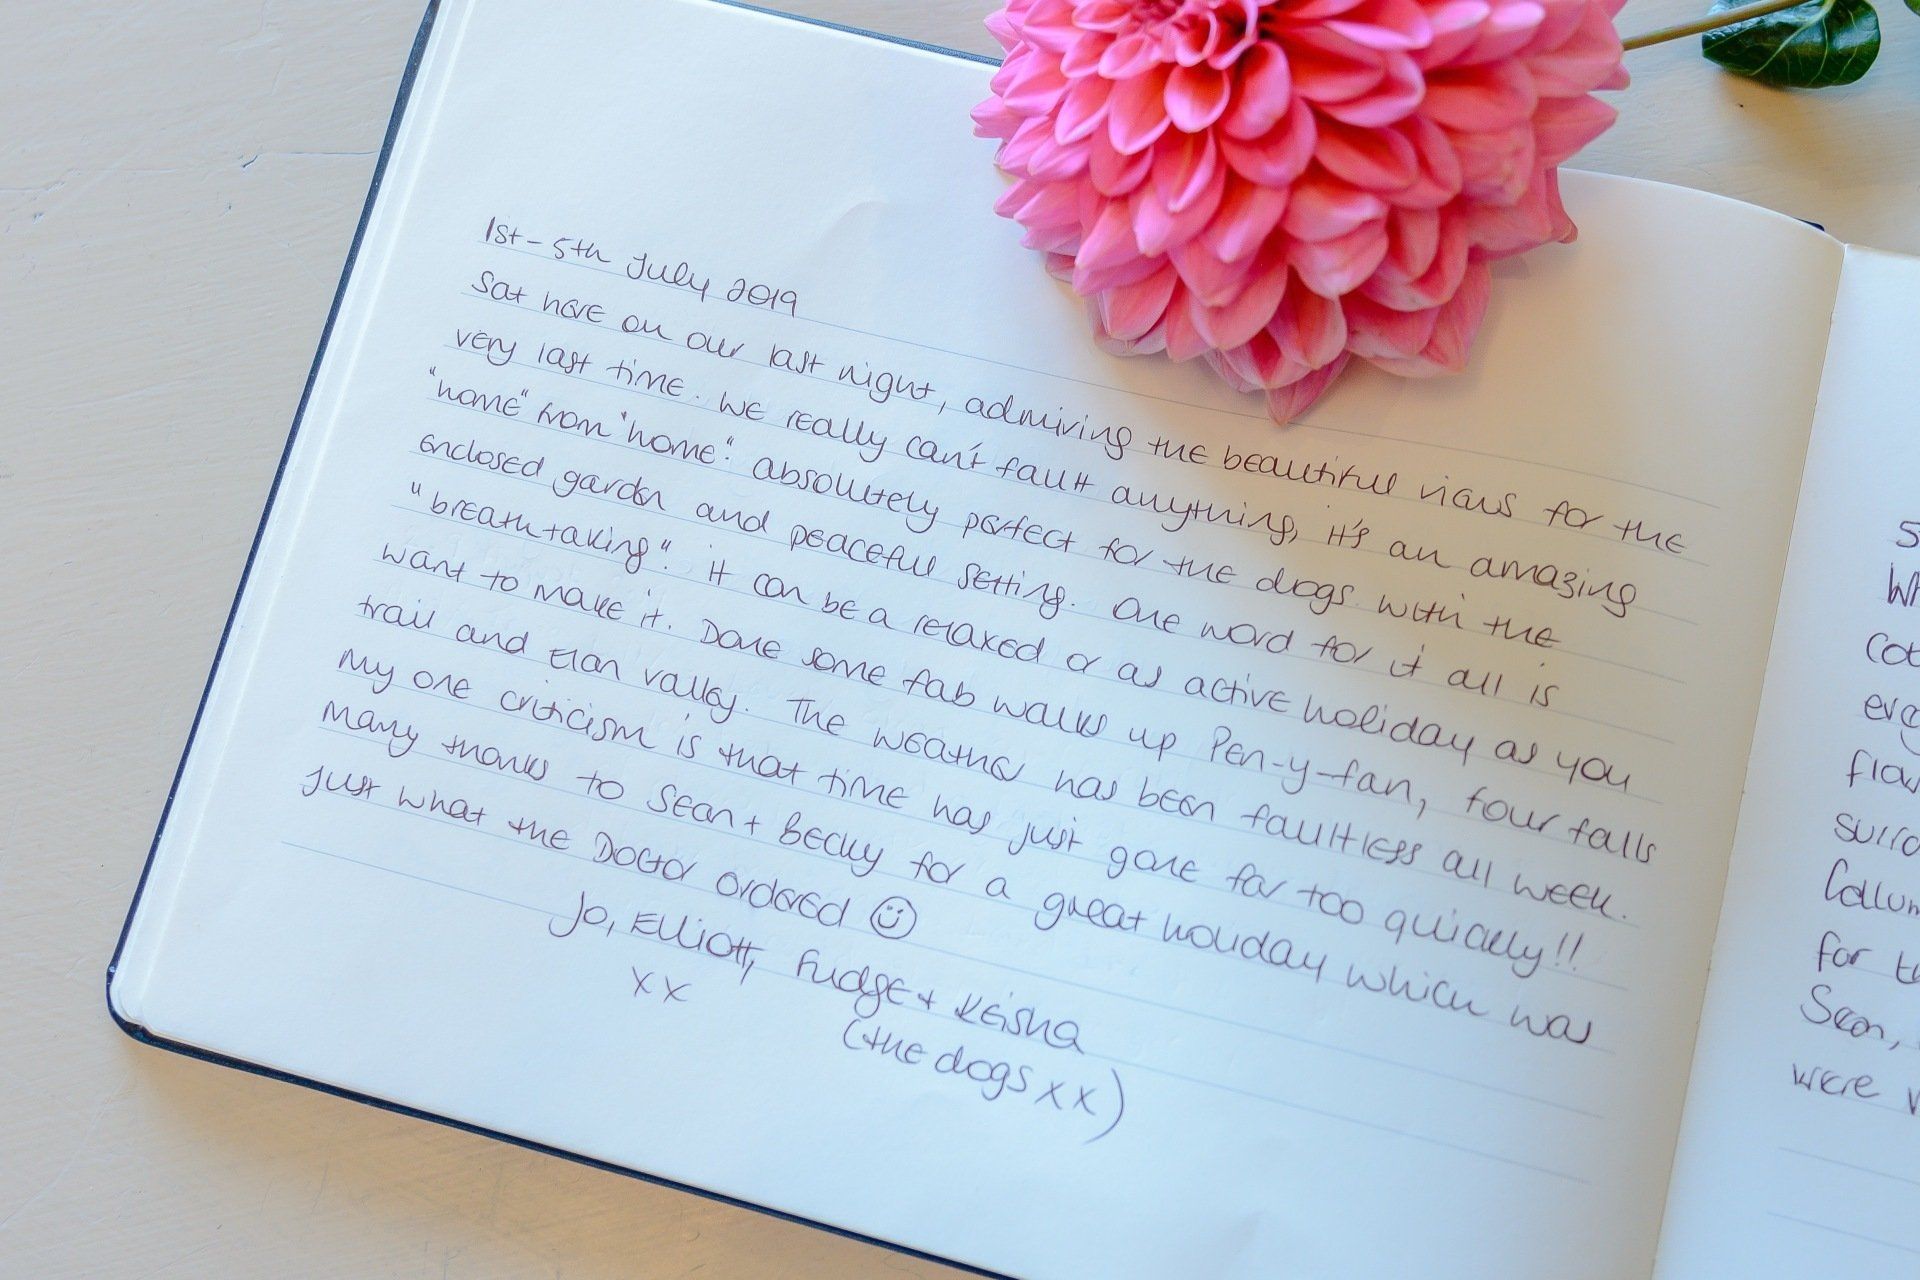 1st - 5th July 2019
Sat here on our last night, admiring the beautiful views for the
very last time. We really can't fault anything, it's an amazing
"home" from "home". absolutely perfect for the dogs with the
enclosed garden and peaceful setting. One word for it all is
"breathtaking". it can be a relaxed or as active holiday as you
want to make it. Done some fab walks up Pen-y-fan, four falls
trail and Elan valley. The weather has been faultless all week.
My one criticism is that time has just gone far too quickly!!
Many thanks to Sean + Becky for a great holiday which was
Just what the Doctor ordered ☺
Jo, Elliott, Fudge + Keisha
xx
(the dogs xx)
for
Sean,
were